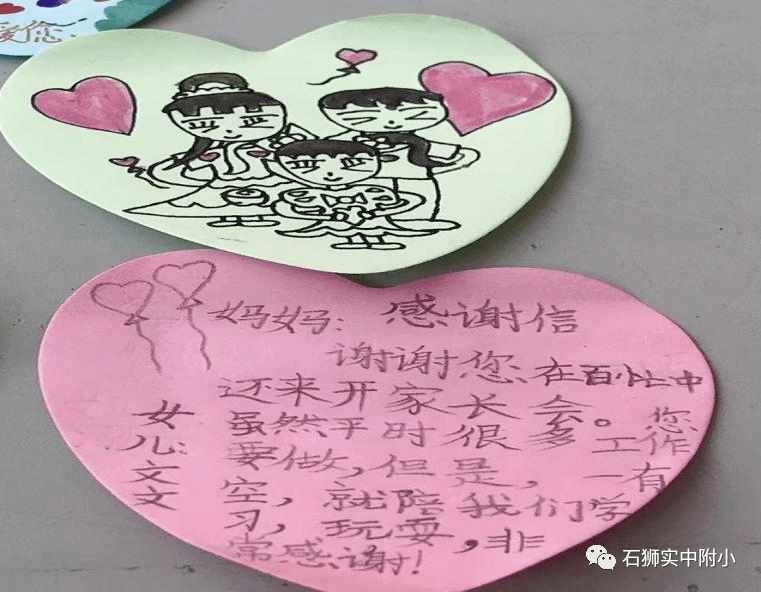 爱您.
妈妈: 感谢信
谢谢您在百忙中
还来开家长会。您
虽然平时很多工作
要做,但是,一有
空,就陪我们学
习,玩耍,非
常感谢!
女儿:文文
石狮实中附小